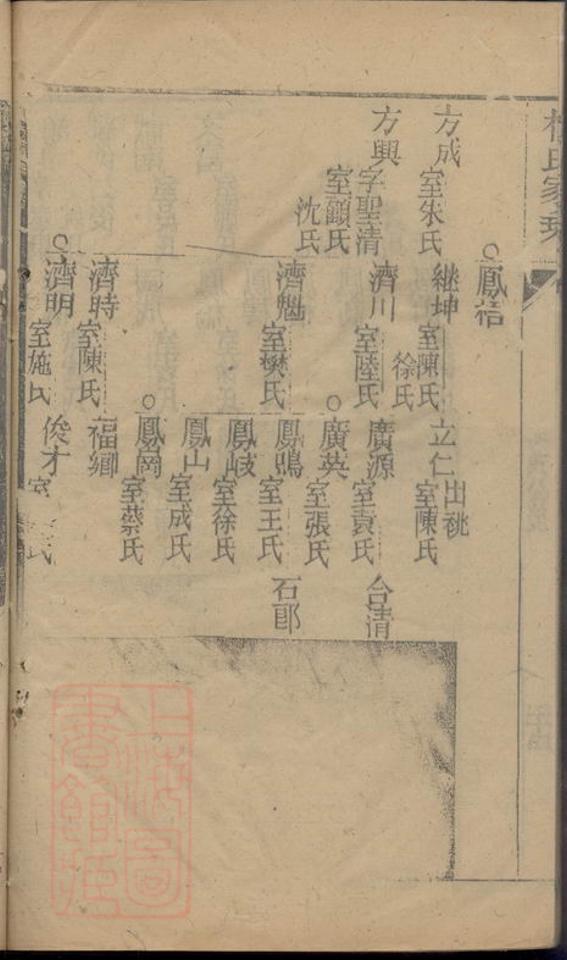 氏家乘
鳳梧
方成
室朱氏
継坤
室陳氏
徐氏
立仁
出祧
室陳氏
方興
字聖清
室顧氏
沈氏
濟川
室陸氏
廣源
室袁氏
合清
廣英
室張氏
濟魁
室樊氏
鳳鳴
室王氏
石郎
鳳岐
室徐氏
鳳山
室成氏
鳳崗
室蔡氏
濟時
室陳氏
福卿
濟明
室施氏
俊才
室
氏
上海圖書館藏